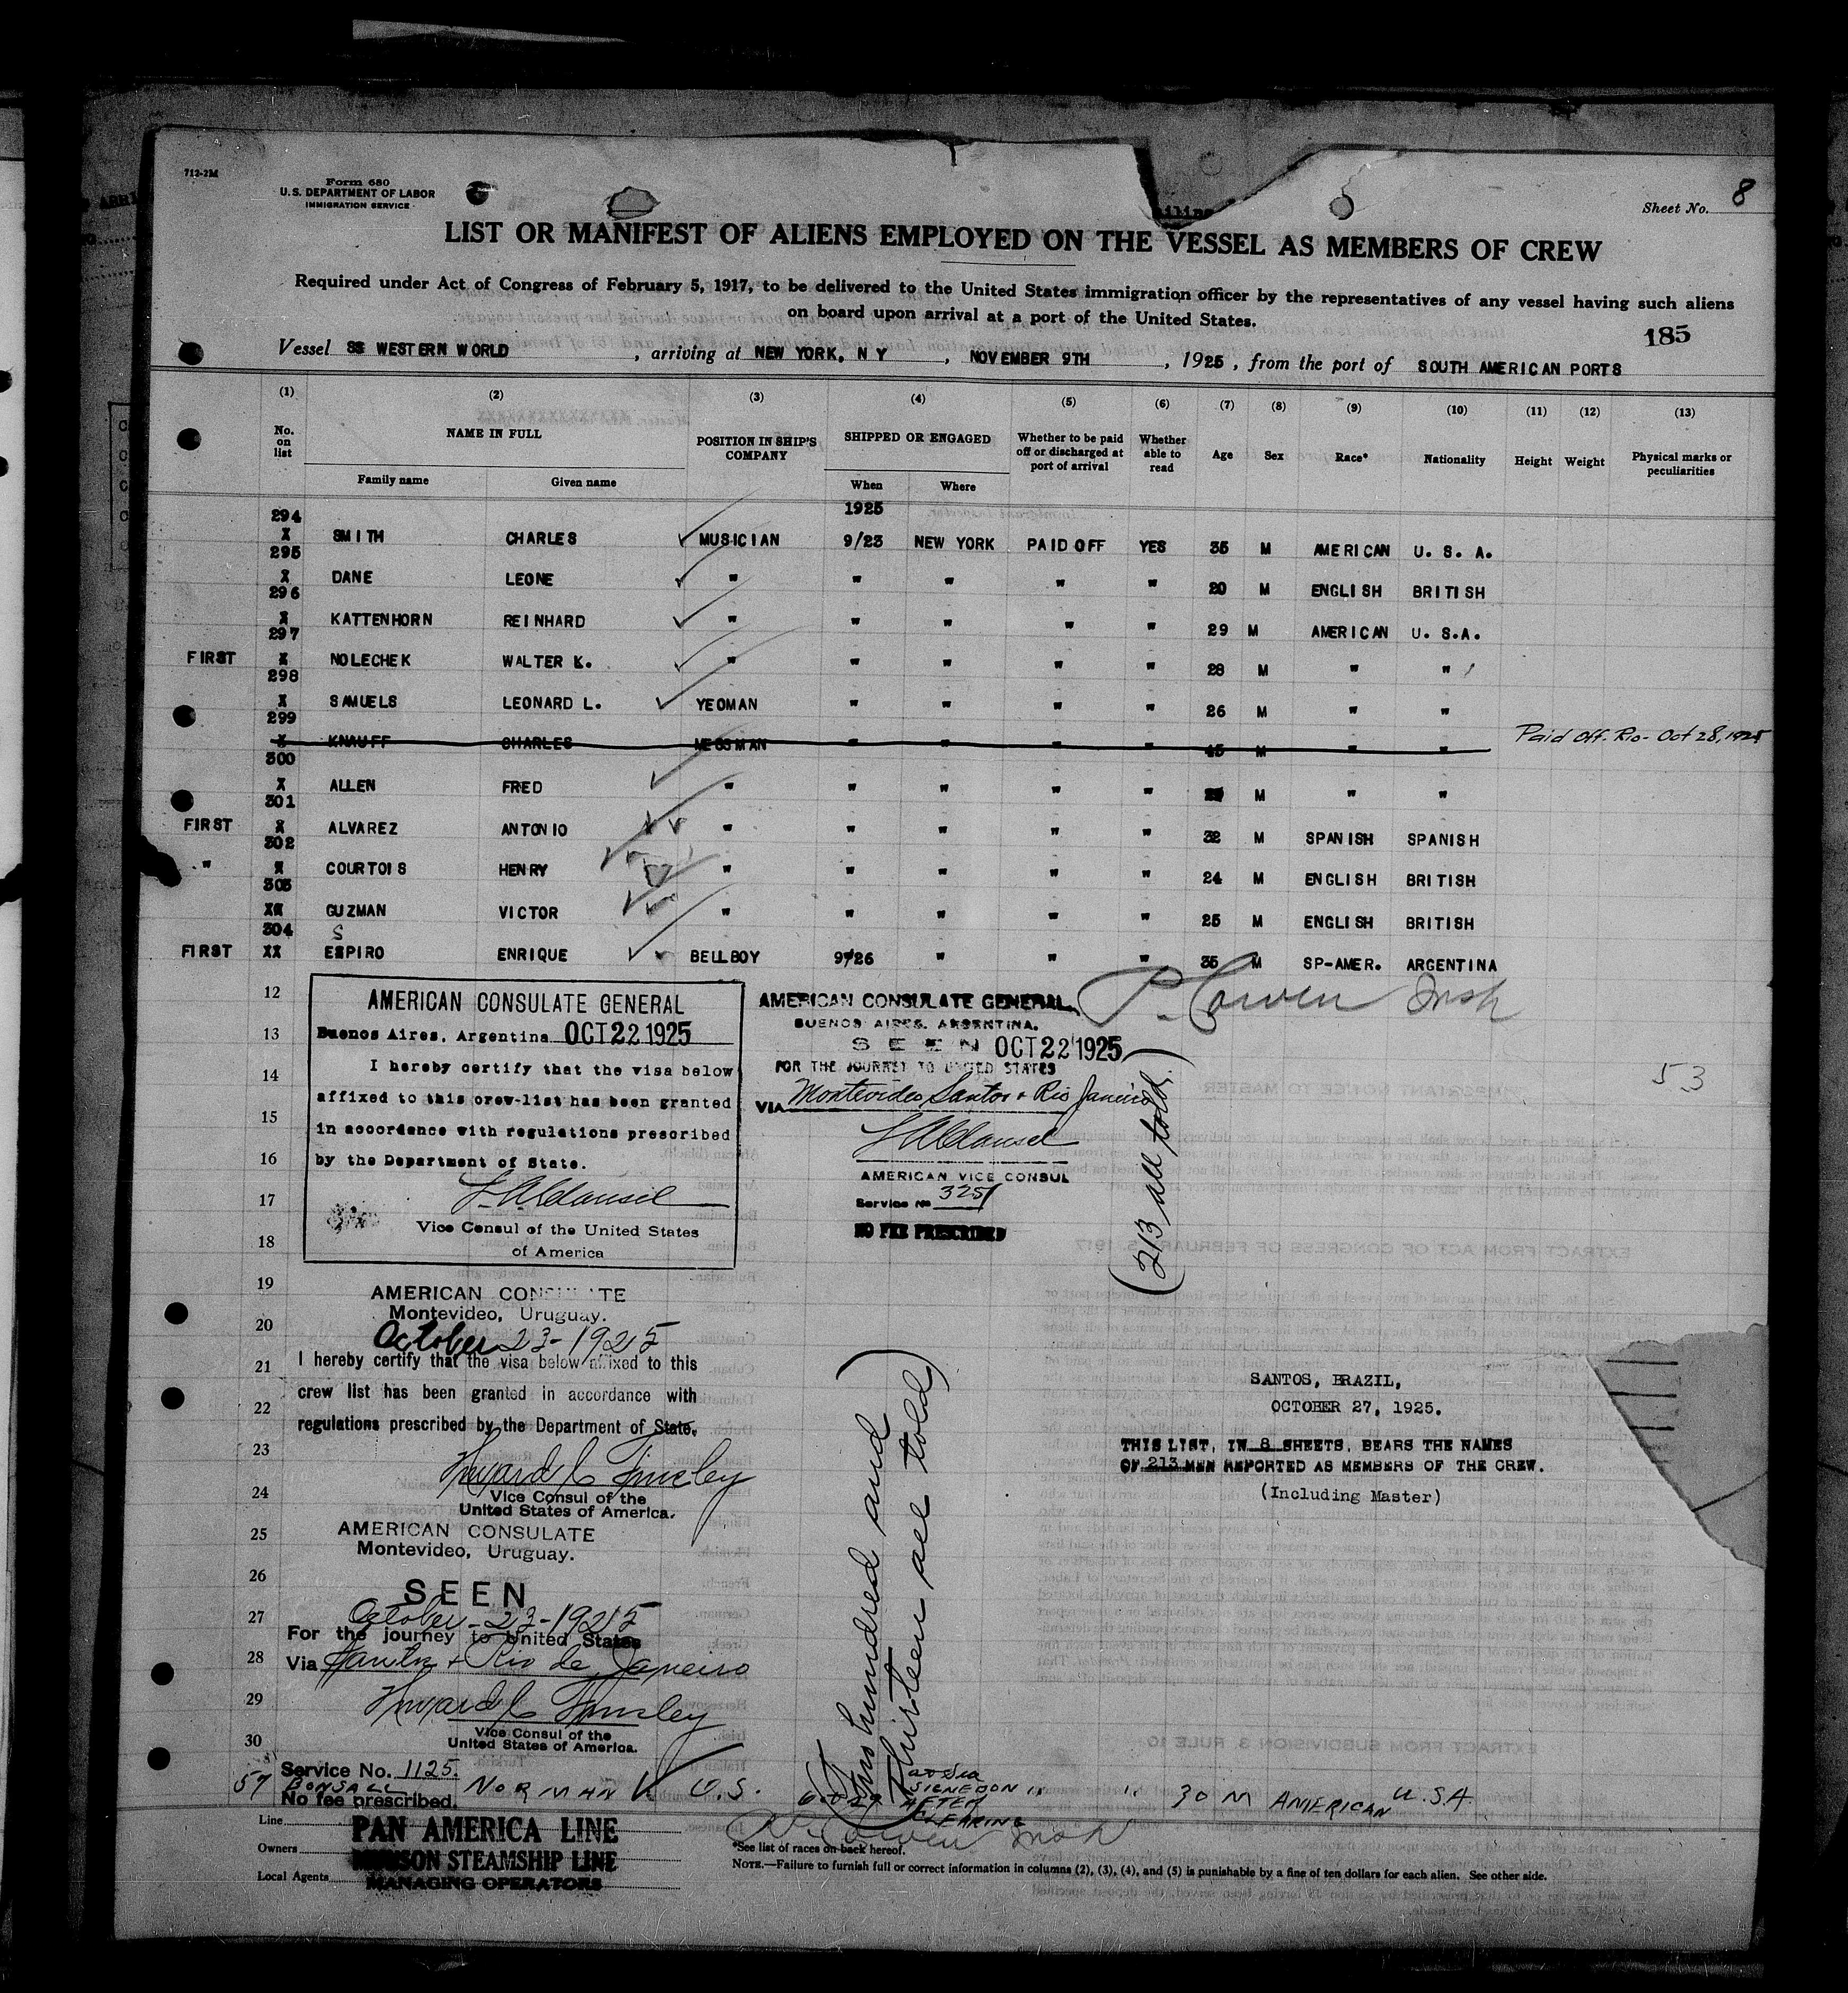 712-2M
Form 680
U.S. DEPARTMENT OF LABOR
IMMIGRATION SERVICE
Sheet No. 8
LIST OR MANIFEST OF ALIENS EMPLOYED ON THE VESSEL AS MEMBERS OF CREW
Required under Act of Congress of February 5, 1917, to be delivered to the United States immigration officer by the representatives of any vessel having such aliens
on board upon arrival at a port of the United States.
185
Vessel SS WESTERN WORLD, arriving at NEW YORK, N Y, NOVEMBER 9TH, 1925, from the port of SOUTH AMERICAN PORTS
(1) (2) (3) (4) (5) (6) (7) (8) (9) (10) (11) (12) (13)
No. on list NAME IN FULL Family name Given name POSITION IN SHIP'S COMPANY SHIPPED OR ENGAGED When Where Whether to be paid off or discharged at port of arrival Whether able to read Age Sex Race* Nationality Height Weight Physical marks or peculiarities
1925
294 X SMITH CHARLES MUSICIAN 9/23 NEW YORK PAID OFF YES 35 M AMERICAN U. S. A.
295 X DANE LEONE " " " " " 20 M ENGLISH BRITISH
296 X KATTENHORN REINHARD " " " " " 29 M AMERICAN U. S.A.
FIRST 297 X NOLECHEK WALTER K. " " " " " 28 M " "
298 X SAMUELS LEONARD L. YEOMAN " " " " 26 M " "
299 X KNAUFF CHARLES MESSMAN " " " " 45 M " " Paid Off. Rio- Oct 28, 1925
300 X ALLEN FRED " " " " " M " "
FIRST 301 X ALVAREZ ANTONIO " " " " " 32 M SPANISH SPANISH
" 302 X COURTOIS HENRY " " " " " 24 M ENGLISH BRITISH
303 XX GUZMAN VICTOR " " " " " 25 M ENGLISH BRITISH
S
FIRST 304 XX ESPIRO ENRIQUE BELLBOY 9/26 " " " 35 M SP-AMER. ARGENTINA
12
13
14
15
16
17
18
19
20
21
22
23
24
25
26
27
28
29
30
AMERICAN CONSULATE GENERAL
Buenos Aires, Argentina OCT 22 1925
I hereby certify that the visa below
affixed to this crew-list has been granted
in accordance with regulations prescribed
by the Department of State.
Vice Consul of the United States
of America
AMERICAN CONSULATE GENERAL
BUENOS AIRES, ARGENTINA.
SEEN OCT 22 1925
FOR THE JOURNEY TO UNITED STATES
VIA Montevideo Santos + Rio Janeiro
AMERICAN VICE CONSUL
Service No 3251
NO FEE PRESCRIBED
P. Cowen Insp
53
(213 all told)
AMERICAN CONSULATE
Montevideo, Uruguay.
October 23-1925
I hereby certify that the visa below affixed to this
crew list has been granted in accordance with
regulations prescribed by the Department of State.
Howard C Tinsley
Vice Consul of the
United States of America.
AMERICAN CONSULATE
Montevideo, Uruguay.
SEEN
October-23-1925
For the journey to United States
Via Santos + Rio de Janeiro
Howard C Tinsley
Vice Consul of the
United States of America.
Service No. 1125.
No fee prescribed.
(Two hundred and
Thirteen all told)
SANTOS, BRAZIL,
OCTOBER 27, 1925.
THIS LIST, IN 8 SHEETS, BEARS THE NAMES
OF 213 MEN REPORTED AS MEMBERS OF THE CREW.
(Including Master)
57 BONSALL NORMAN O.S. at Sea SIGNED ON AFTER CLEARING " " 30 M AMERICAN U.S.A.
Cowen Insp
Line PAN AMERICA LINE
Owners MUNSON STEAMSHIP LINE
Local Agents MANAGING OPERATORS
*See list of races on back hereof.
NOTE.—Failure to furnish full or correct information in columns (2), (3), (4), and (5) is punishable by a fine of ten dollars for each alien. See other side.